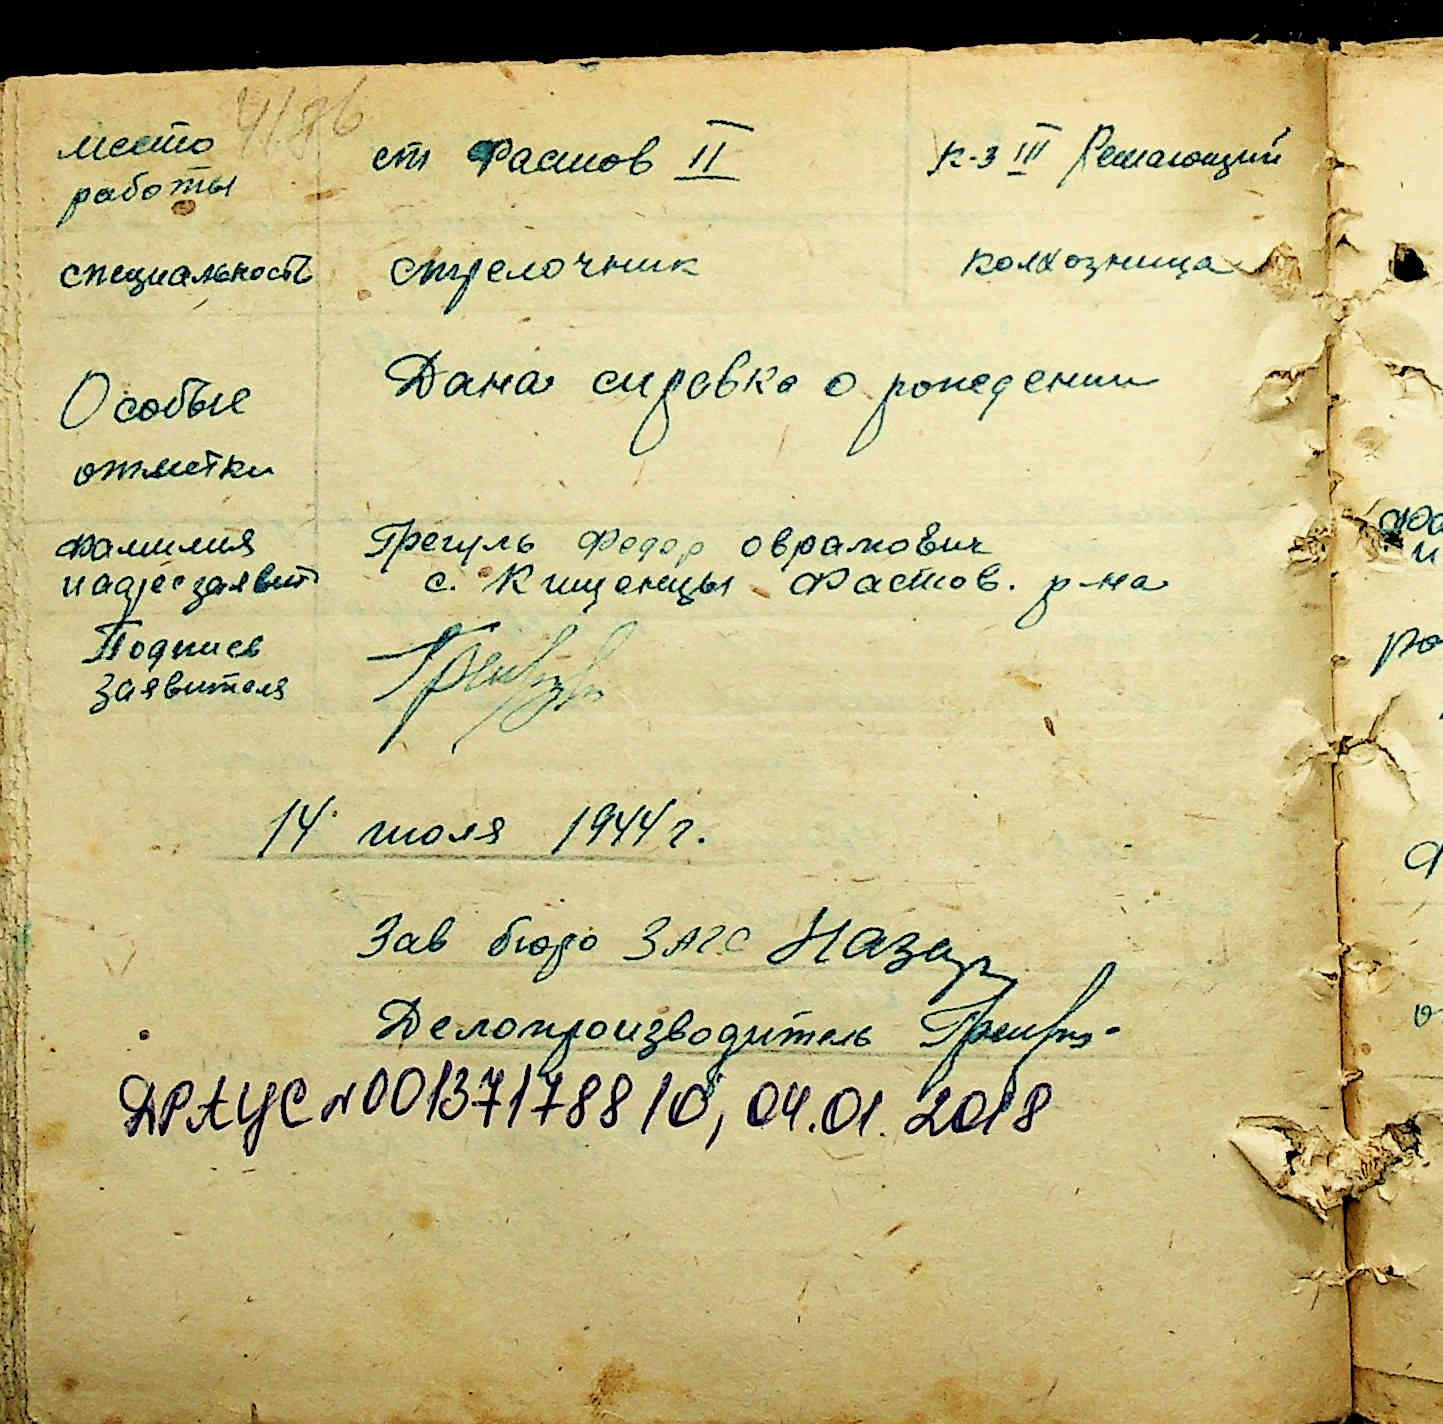 место
работы
ст Фастов II
к-з III Решающий
специальность
стрелочник
колхозница
Особые
отметки
Дана справка о рождении
фамилия
и адрес заявит
Грегуль Федор овралювич
с. Кищенцы Фастов. р-на
Подпись
заявителя
14 июля 1944 г.
Зав бюро ЗАГС
Делопроизводитель
ДРАЦС №00137178810, 04.01.2018